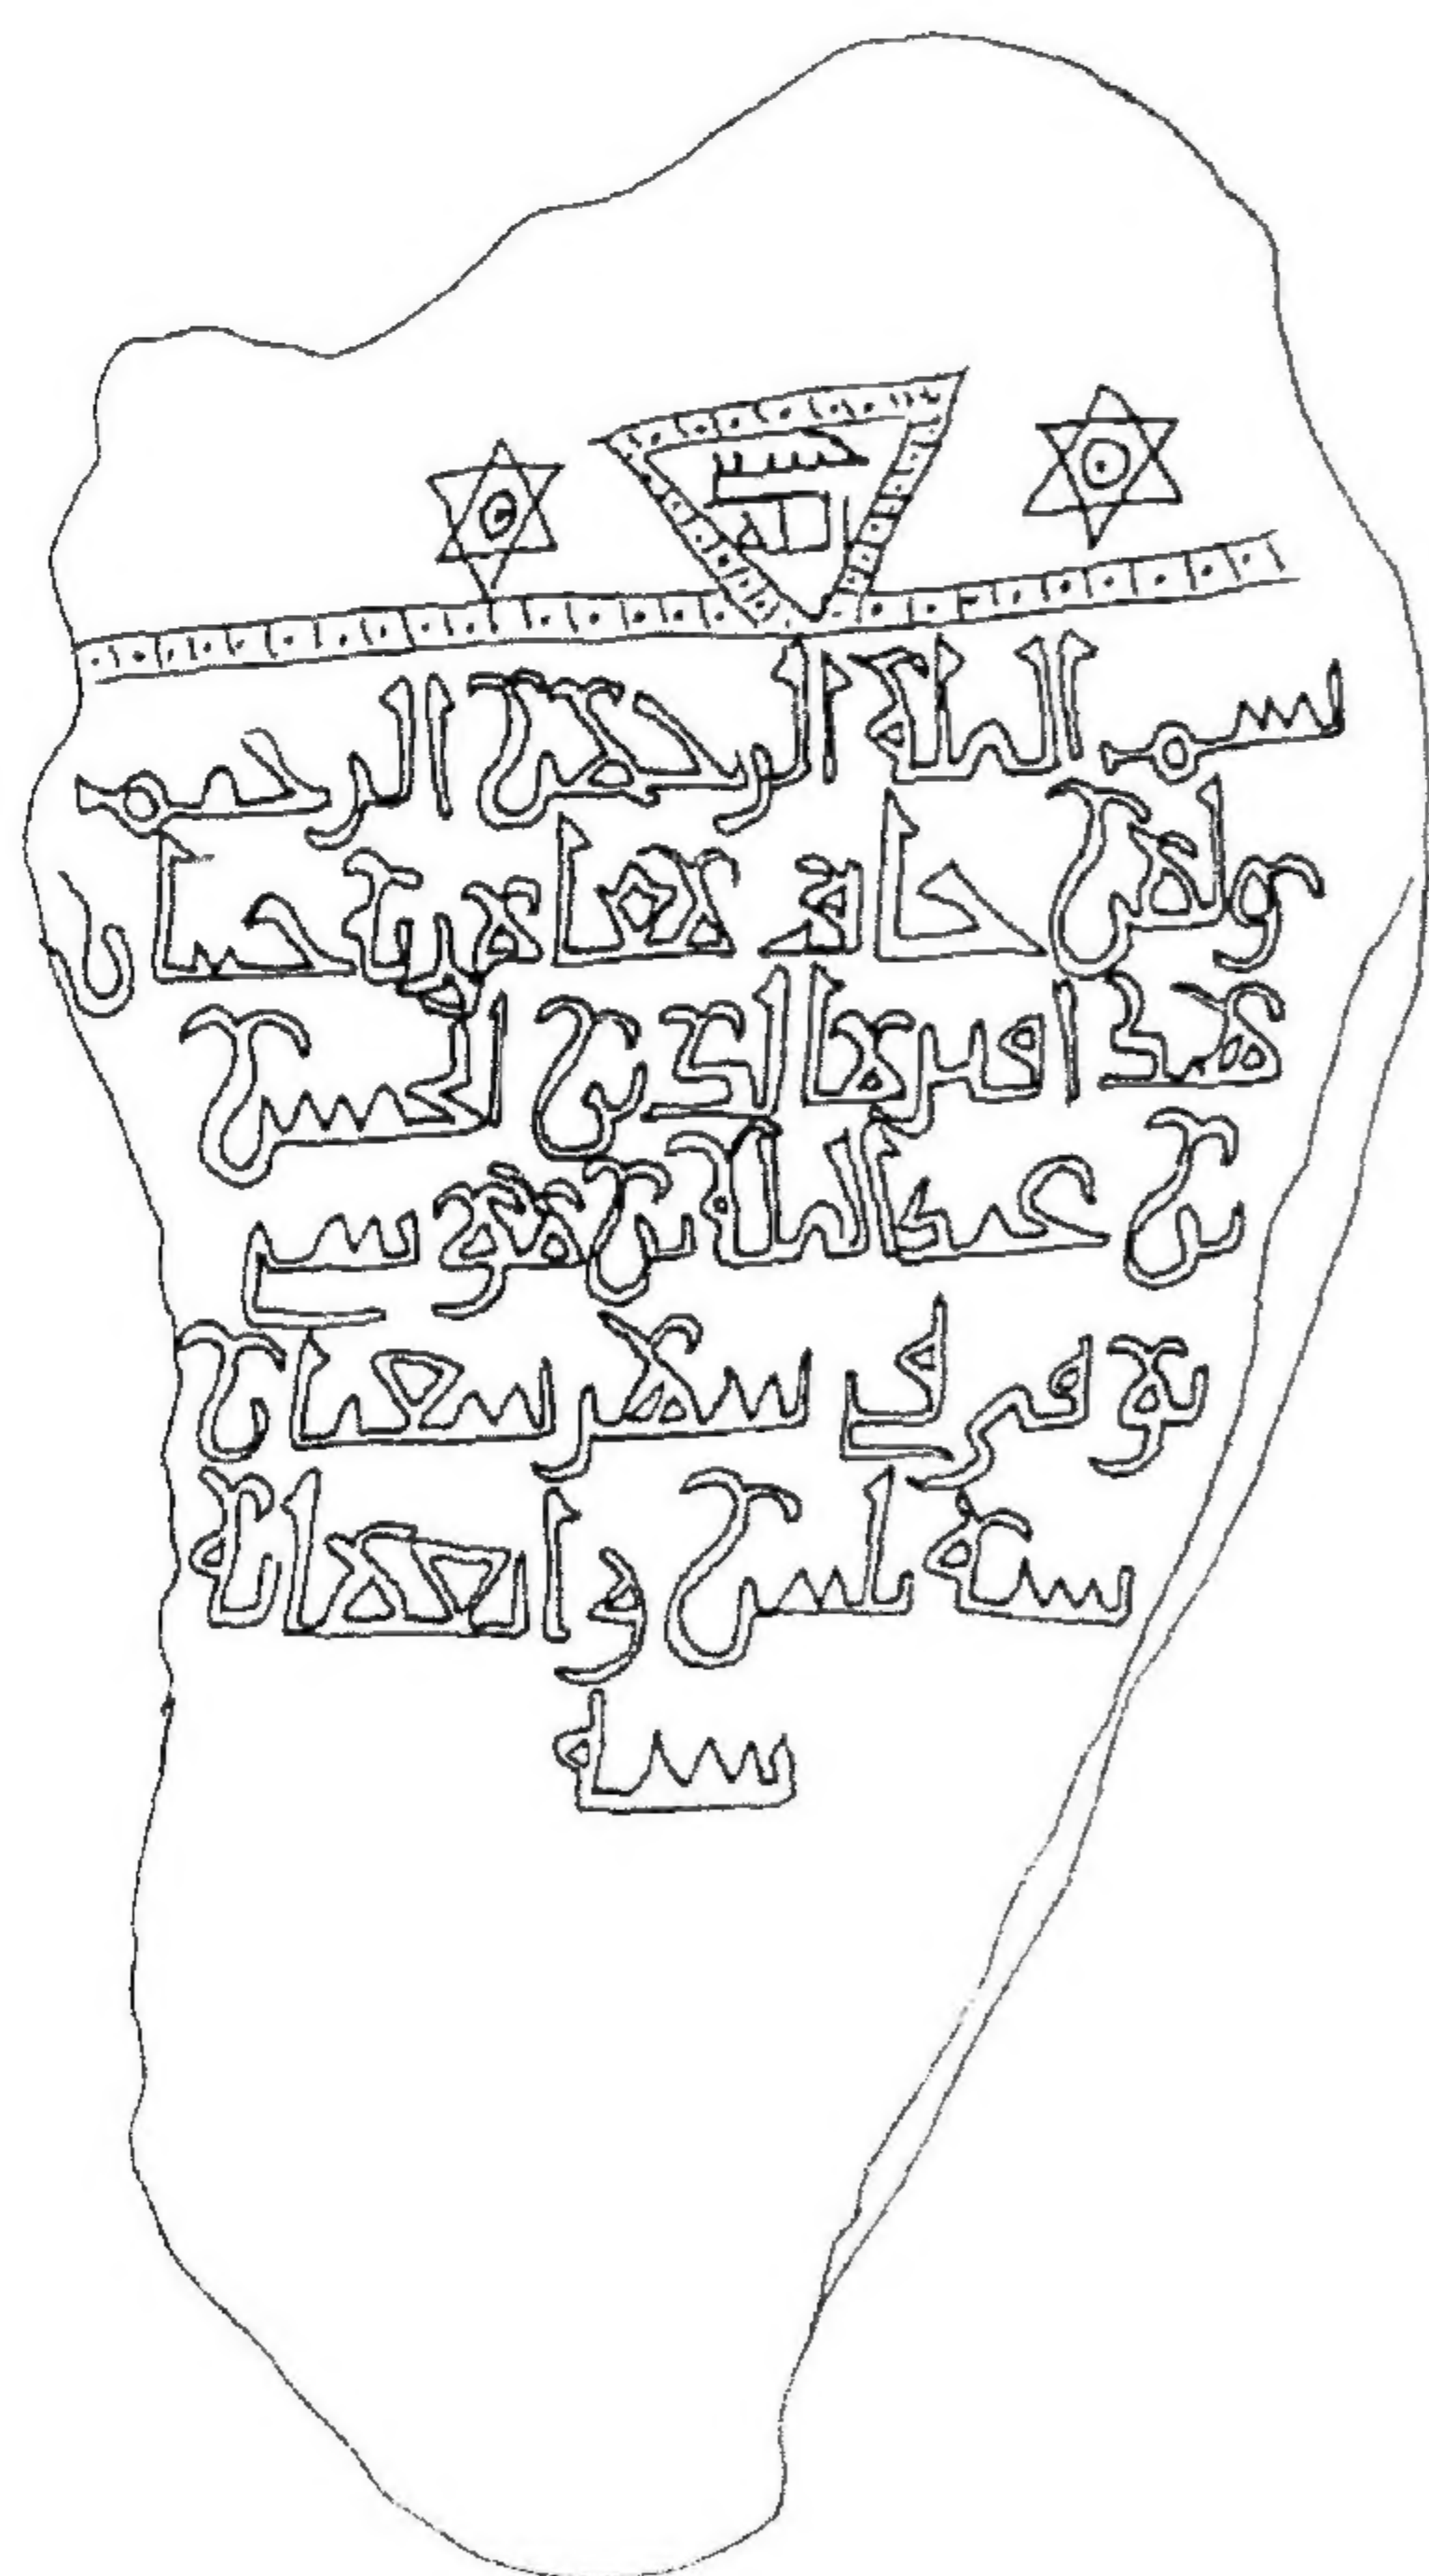 بسم الله الرحمن الرحيم
ولمن خاف مقام ربه جنتان
هذا قبر بن الحسن
بن عبد الله بن موسى
توفي في شهر شعبان
سنة ثلثين واربعمائة
سنة